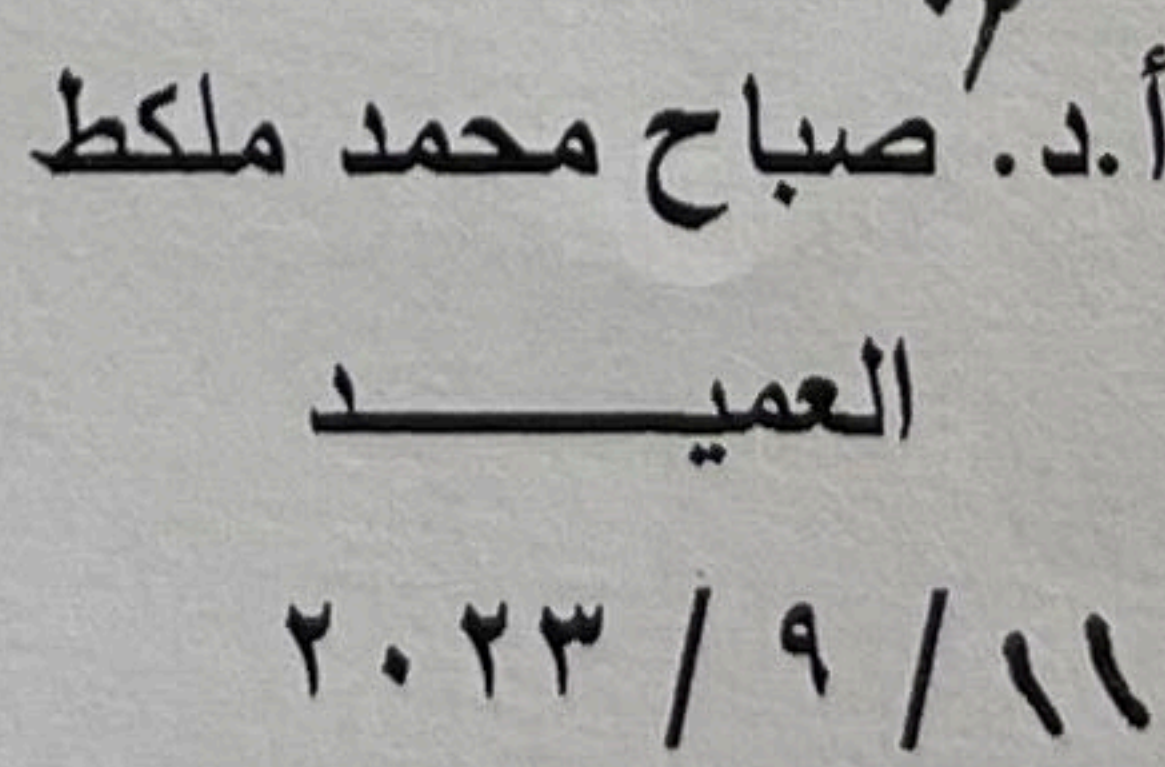 أ.د. صباح محمد ملكط
العميـــــــد
١١ / ٩ / ٢٠٢٣